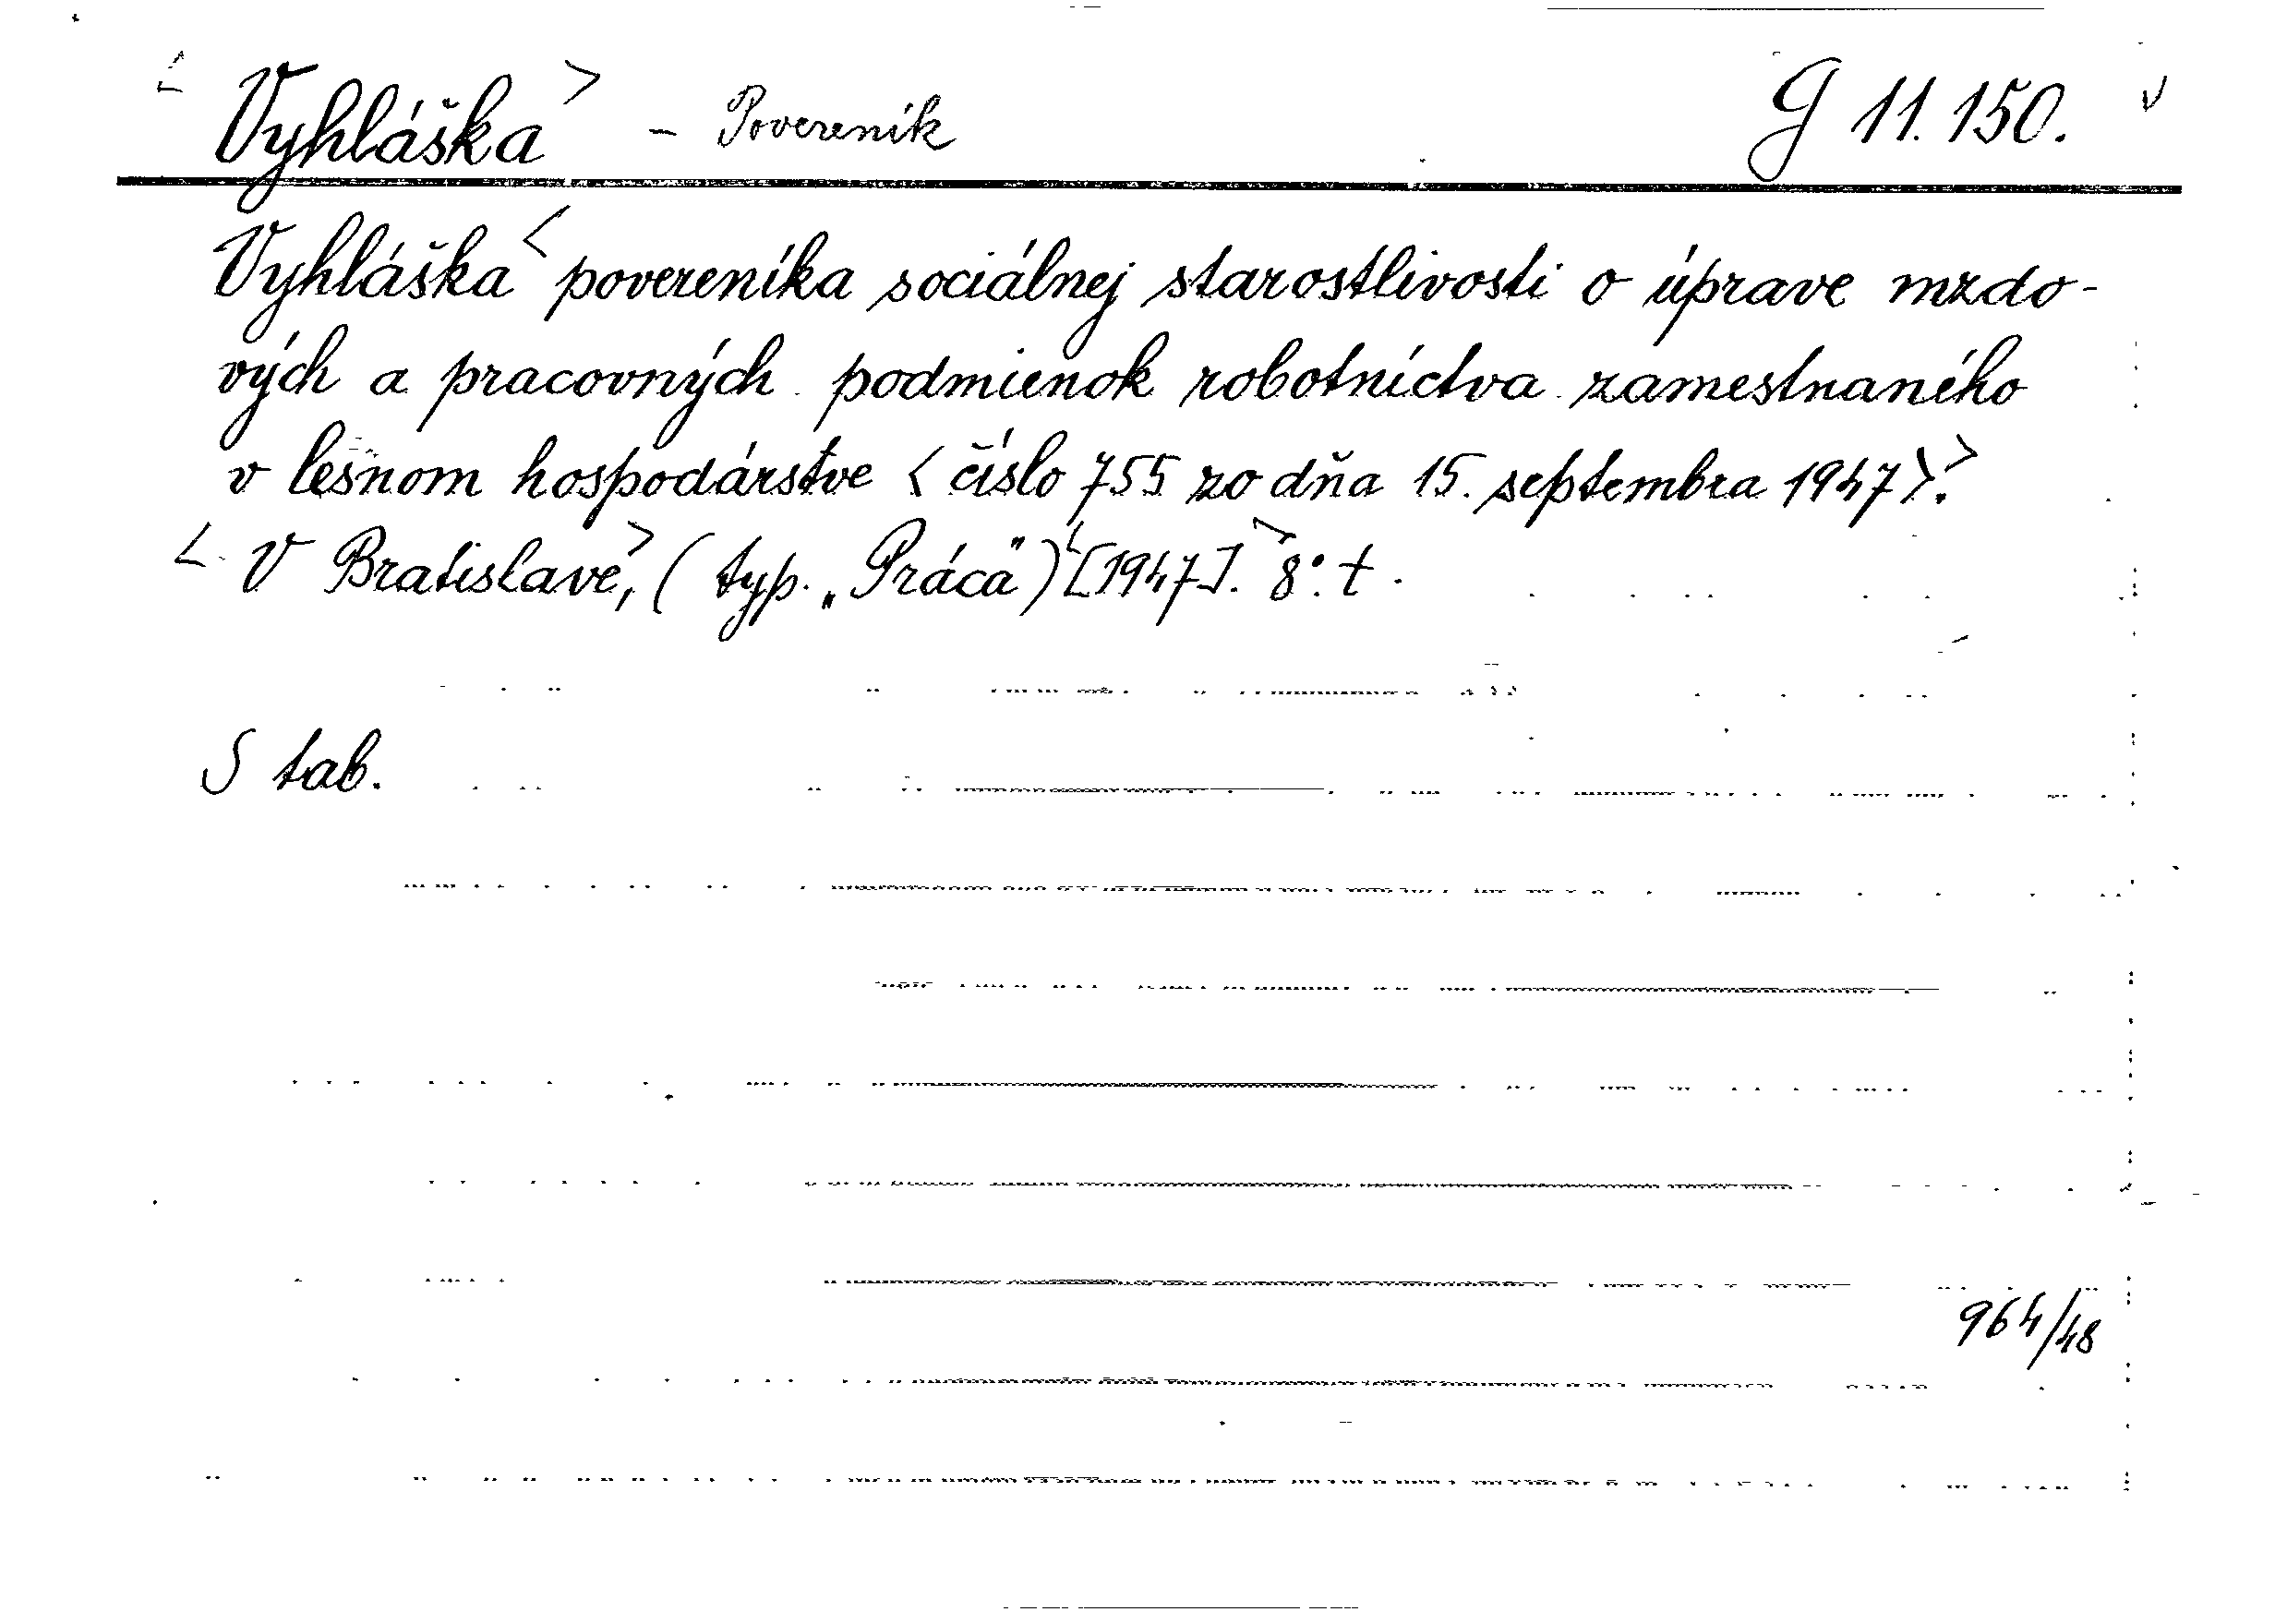 <Vyhláška> - Poverenik G 11.150. v
Vyhláška< povereníka sociálnej starostlivosti o úprave mzdo-
vých a pracovných podmienok robotníctva zamestnaného
v lesnom hospodárstve <číslo 755 zo dňa 15. septembra 1947>.>
< V Bratislave,> (typ. „Práca") <[1947].> 8°. t.
S tab.
964/48